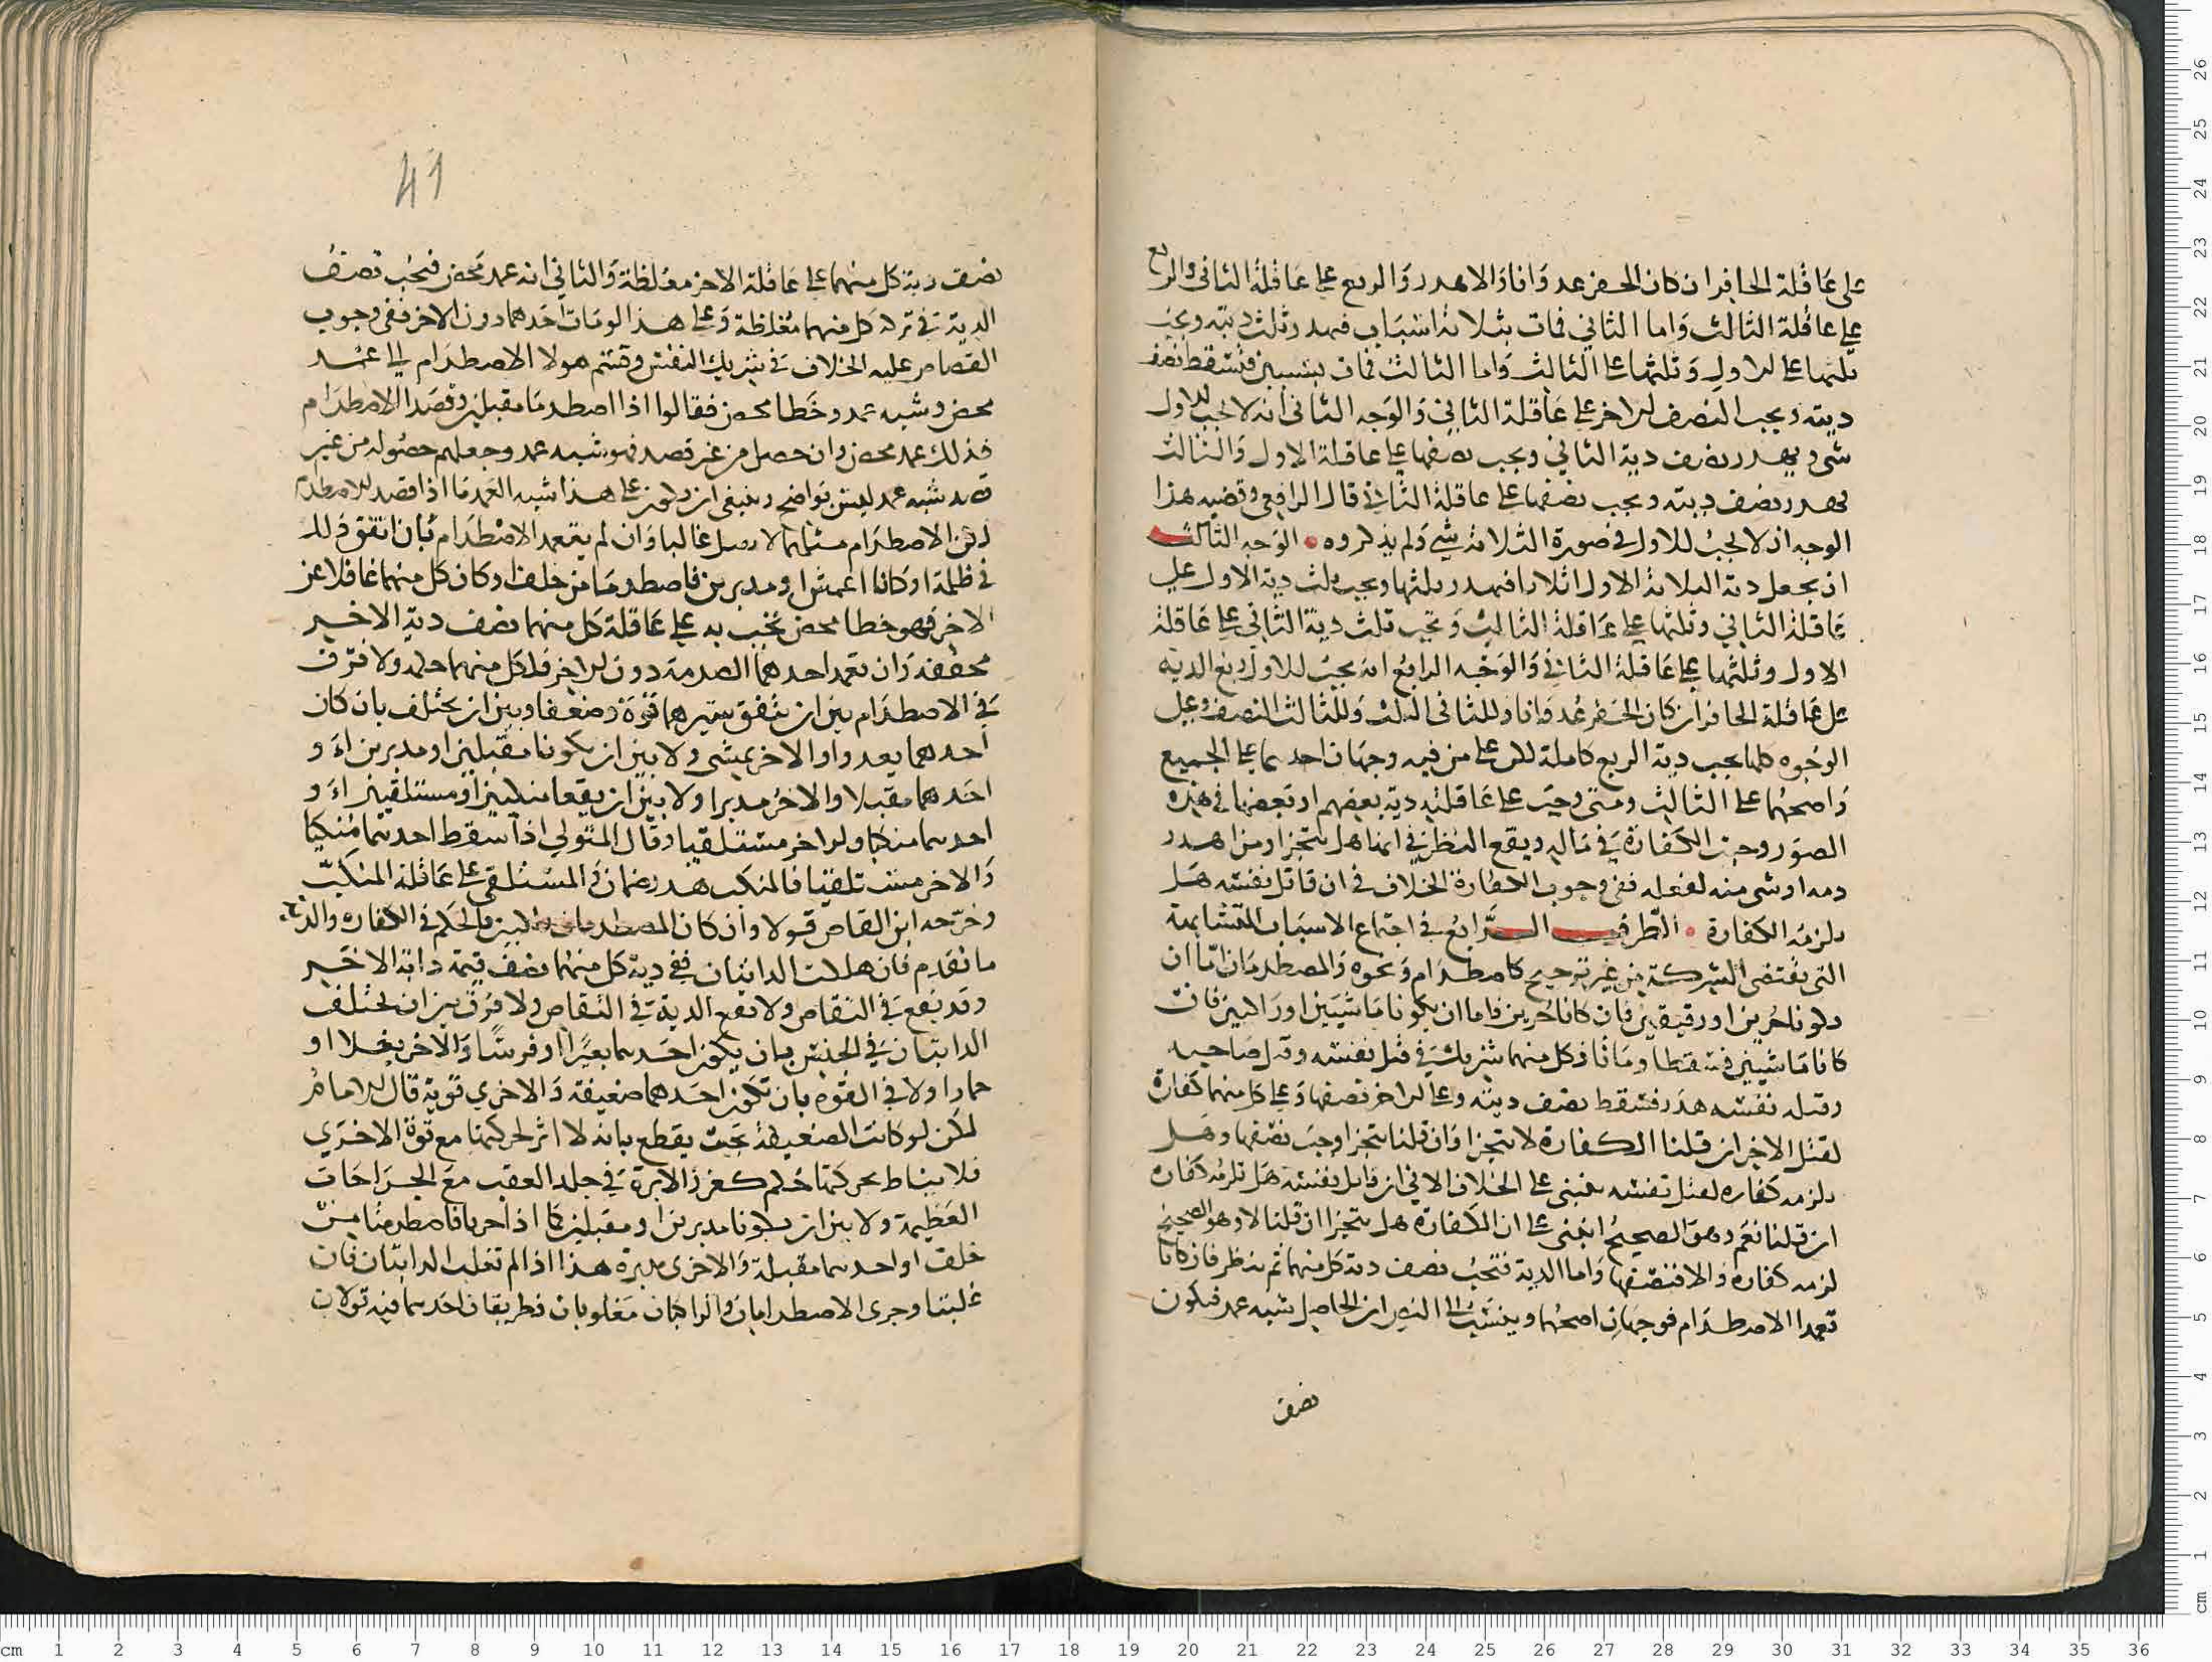 على عاقلة الحافر ان كان الحفر عدوانا والا هدر والربع على عاقلة الثاني والربع
على عاقلة الثالث واما الثاني فمات بثلاثة اسباب فهدر ثلث ديته ويجب
ثلثها على الاول وثلثها على الثالث واما الثالث فمات بسببين فتسقط نصف
ديته ويجب النصف الاخر على عاقلة الثاني والوجه الثاني انه لا يجب للاول
شي ويهدر نصف دية الثاني ويجب نصفها على عاقلة الاول والثالث
يهدر نصف ديته ويجب نصفها على عاقلة الثاني قال الرافعي وقضيه هذا
الوجه ان لا يجب للاول في صورة الثلاثة شي ولم يذكروه • الوجه الثالث
ان يجعل دية الثلاثة الاول اثلاثا فيهدر ثلثها ويجب ثلث دية الاول على
عاقلة الثاني وثلثها على عاقلة الثالث وتجب ثلث دية الثاني على عاقلة
الاول وثلثها على عاقلة الثاني والوجه الرابع انه يجب للاول ربع الديه
على عاقلة الحافر ان كان الحفر عدوانا وللثاني الثلث وللثالث النصف وعلى
الوجوه كلها يجب دية الرابع كاملة لكن على من فيه وجهان احدهما على الجميع
واصحهما على الثالث ومتى وجبت على عاقلته دية بعضهم او بعضها في هذه
الصور وجبت الكفارة في ماله ويقع النظر في انها هل تتجزا ومن اهدر
دمه او شي منه لفعله ففي وجوب الكفارة الخلاف في ان قاتل نفسه هل
يلزمه الكفارة • الطرف الرابع في اجتماع الاسباب المتشابهة
التي تقتضي الشركة من غير ترجيح كاصطدام ونحوه والمصطدمان اما ان
يكونا حرين او رقيقين فان كانا حرين فاما ان يكونا ماشيين او راكبين فان
كانا ماشيين فسقطا وماتا فكل منهما شريك في قتل نفسه وقتل صاحبه
وقتله نفسه هدر فتسقط نصف ديته وعلى الاخر نصفها وعلى كل منهما كفارة
لقتل الاخر ان قلنا الكفارة لا تتجزا وان قلنا تتجزا وجب نصفها وهل
يلزمه كفاره لقتل نفسه يبتني على الخلاف الاتي ان قاتل نفسه هل تلزمه كفاره
ان قلنا نعم وهو الصحيح ابتنى على ان الكفارة هل تتجزا ان قلنا لا وهو الصحيح
لزمه كفاره والا فنصفها واما الدية فتجب نصف دية كل منهما ثم ينظر فان كانا
تعمدا الاصطدام فوجهان اصحهما وينسب الى النص ان الحاصل شبه عمد فيكون
نصف
41
نصف دية كل منهما على عاقلة الاخر مغلظة والثاني انه عمد محض فيجب نصف
الدية في تركة كل منهما مغلظة وعلى هذا لو مات احدهما دون الاخر ففي وجوب
القصاص عليه الخلاف في شريك النفس وقسم هولا الاصطدام الى عمد
محض وشبه عمد وخطا محض فقالوا اذا اصطدما مقبلين وقصدا الاصطدام
فذلك عمد محض وان حصل من غير قصد فهو شبه عمد وجعلهم حصوله من غير
قصد شبه عمد ليس بواضح وينبغي ان يكون على هذا شبه العمد ما اذا قصد الاصطدام
لكن الاصطدام مثلهما لا يقتل غالبا وان لم يتعمد الاصطدام بان اتفق ذلك
في ظلمة او كانا اعميين او مدبرين فاصطدما من خلف او كان كل منهما غافلا عن
الاخر فهو خطا محض تجب به على عاقلة كل منهما نصف دية الاخر
مخففة وان تعمد احدهما الصدمة دون الاخر فلكل منهما حكمه ولا فرق
في الاصطدام بين ان يتفق سيرهما قوة وضعفا وبين ان يختلف بان كان
احدهما يعدوا والاخر يمشي ولا بين ان يكونا مقبلين او مدبرين او
احدهما مقبلا والاخر مدبرا ولا بين ان يقعا منكبين او مستلقيين او
احدهما منكبا والاخر مستلقيا وقال المتولي اذا سقط احدهما منكبا
والاخر مستلقيا فالمنكب هدر وضمان المستلقي على عاقلة المنكب
وخرجه ابن القاص قولا وان كان المصطدمان راكبين فالحكم في الكفاره والدية
ما تقدم فان هلكت الدابتان ففي دية كل منهما نصف قيمة دابة الاخر
وقد يقع في التقاص ولا تقع الدية في التقاص ولا فرق بين ان يختلف
الدابتان في الجنس بان يكون احدهما بعيرا او فرسا والاخر بغلا او
حمارا ولا في القوة بان تكون احدهما ضعيفة والاخري قوية قال الامام
لكن لو كانت الضعيفة بحيث يقطع بانه لا اثر لحركتها مع قوة الاخري
فلا يناط بحركتها حكم كغرز الابرة في جلد العقب مع الجراحات
العظيمة ولا بين ان يكونا مدبرين او مقبلين كما اذا حربا فاصطدما من
خلف او احدهما مقبلة والاخرى مدبرة هذا اذا لم تغلب الدابتان فان
غلبتا وجرى الاصطدام بان والراكبان مغلوبان فطريقان احدهما فيه قولان